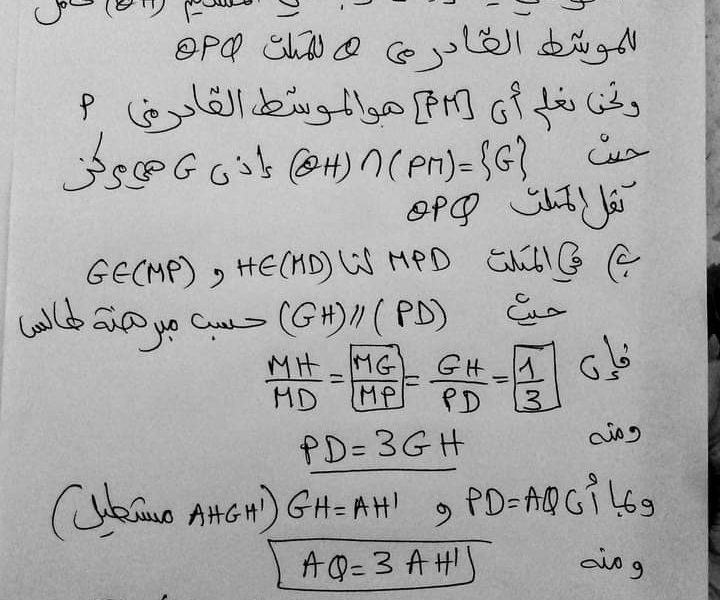 (ӨH) حامل
للموسط الصادر من Ө للمثلث ӨPQ
ونحن نعلم أن [PM] هو الموسط الصادر من P
حيث (ӨH)∩(PM)={G} إذن G هي مركز
ثقل المثلث ӨPQ
ج) في المثلث MPD لنا H∈(MD) و G∈(MP)
حيث (GH)//(PD) حسب مبرهنة طالس
فإن MH/MD = MG/MP = GH/PD = 1/3
ومنه PD=3GH
وبما أن PD=AQ و GH=AH' (AHGH' مستطيل)
ومنه AQ=3AH'